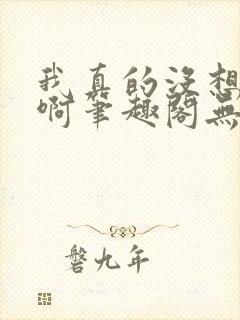 我真的没想
啊笔趣阁无
磐九年